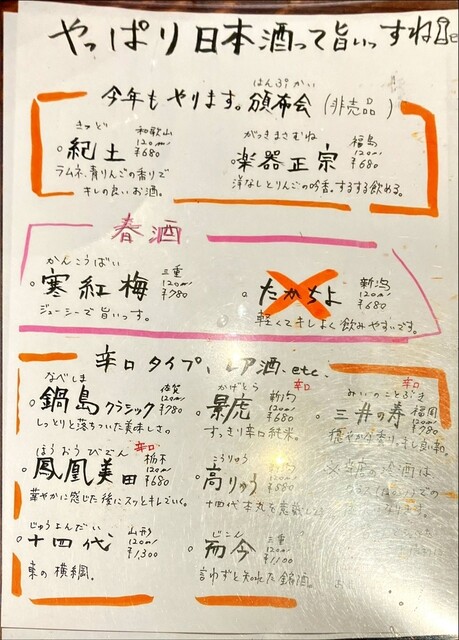 やっぱり日本酒って旨いっすね
はんぷかい
今年もやります。頒布会(非売品)
きっど 和歌山
紀土 120ml ¥680
ラムネ、青りんごの香りで
キレの良いお酒。
がっきまさむね 福島
楽器正宗 120ml ¥680
洋なしとりんごの吟香。するする飲める。
春酒
かんこうばい 三重
寒紅梅 120ml ¥780
ジューシーで旨いっす。
たかちよ 新潟 120ml ¥680
軽くてキレよく飲みやすいです。
辛口タイプ、レア酒.etc.
なべしま 佐賀
鍋島クラシック 120ml ¥780
しっとりと落ちついた美味しさ。
かげとら 辛口
景虎 新潟 120ml ¥680
すっきり辛口純米。
みいのことぶき 辛口
三井の寿 福岡 120ml ¥780
穏やかな香り。キレ良い辛口。
ほうおうびでん 辛口
鳳凰美田 栃木 120ml ¥880
華やかに感じた後にスッとキレていく。
こうりゅう
高りゅう 120ml
十四代本丸を意識した
酒は
での
じゅうよんだい 山形
十四代 120ml ¥1,300
東の横綱。
じこん 三重
而今 120ml ¥1,100
言わずと知れた銘酒。